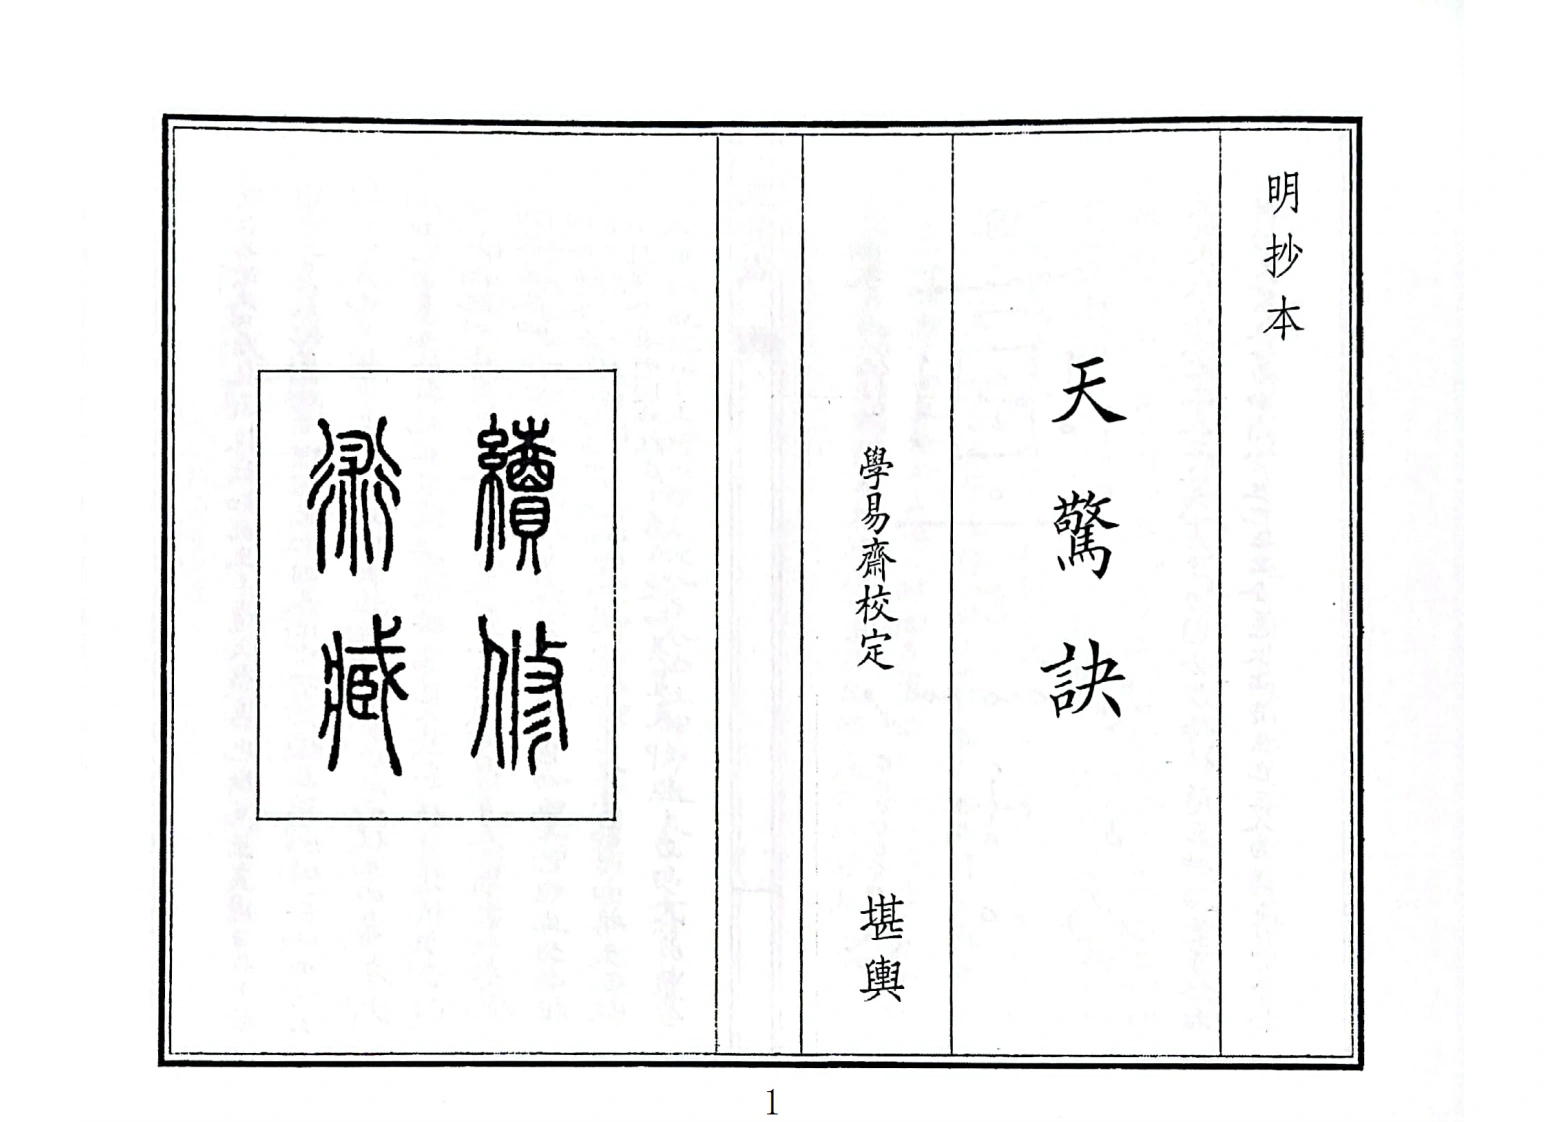 明抄本
天驚訣
學易齋校定 堪輿
續修
術藏
1